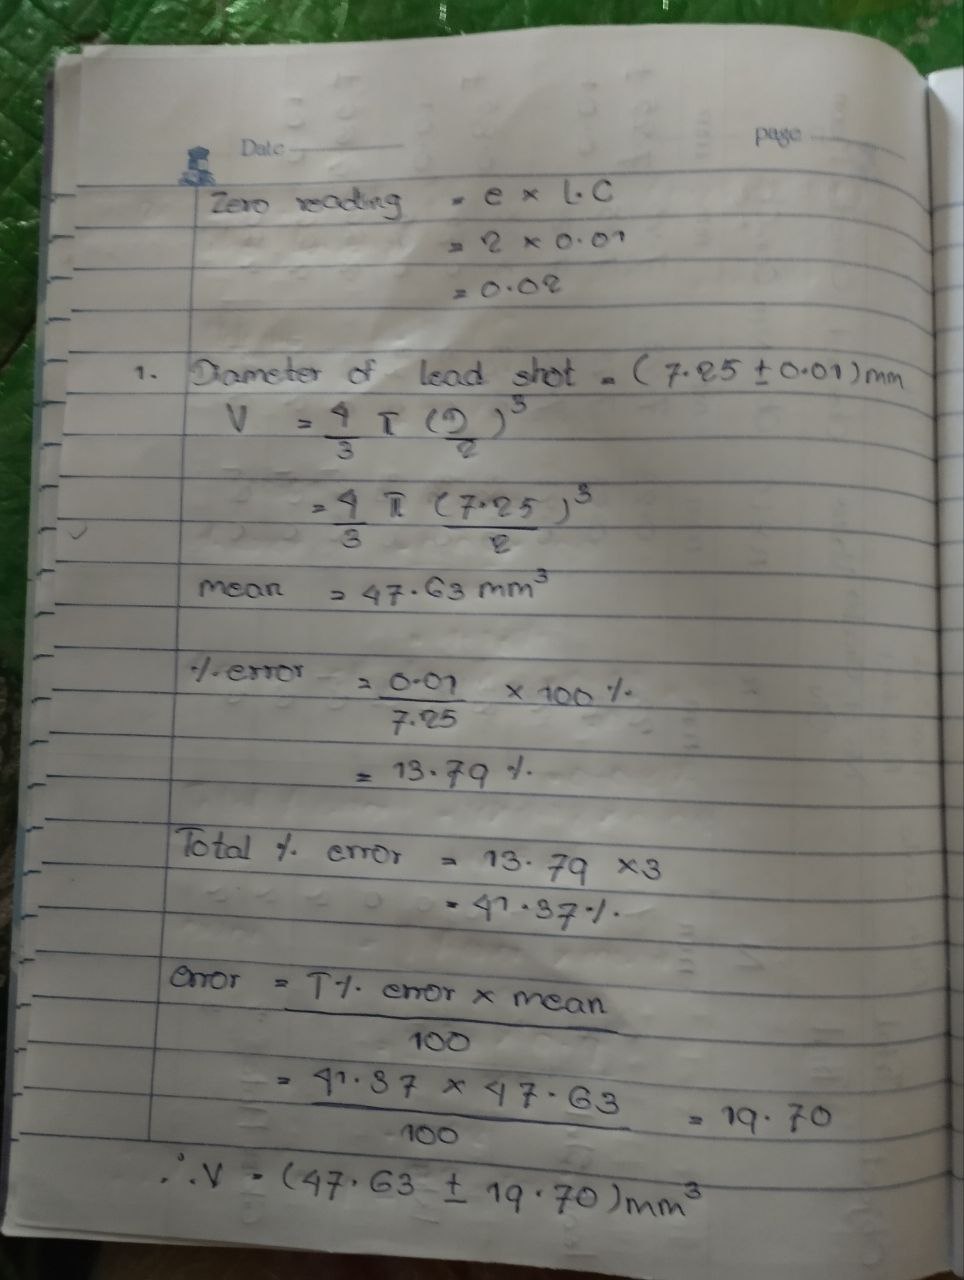 Date
page
Zero reading = e × L.C
= 2 × 0.01
= 0.02
1. Diameter of lead shot = (7.25 ± 0.01) mm
V = 4/3 π (D/2)³
= 4/3 π (7.25/2)³
mean = 47.63 mm³
% error = 0.01/7.25 × 100 %
= 13.79 %
Total % error = 13.79 × 3
= 41.37 %.
error = T% error × mean / 100
= 41.37 × 47.63 / 100 = 19.70
∴ V = (47.63 ± 19.70) mm³